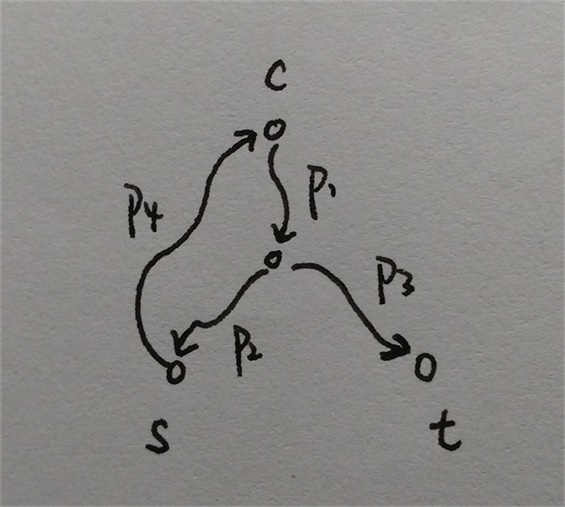 c
P1
P4
P3
P2
s
t